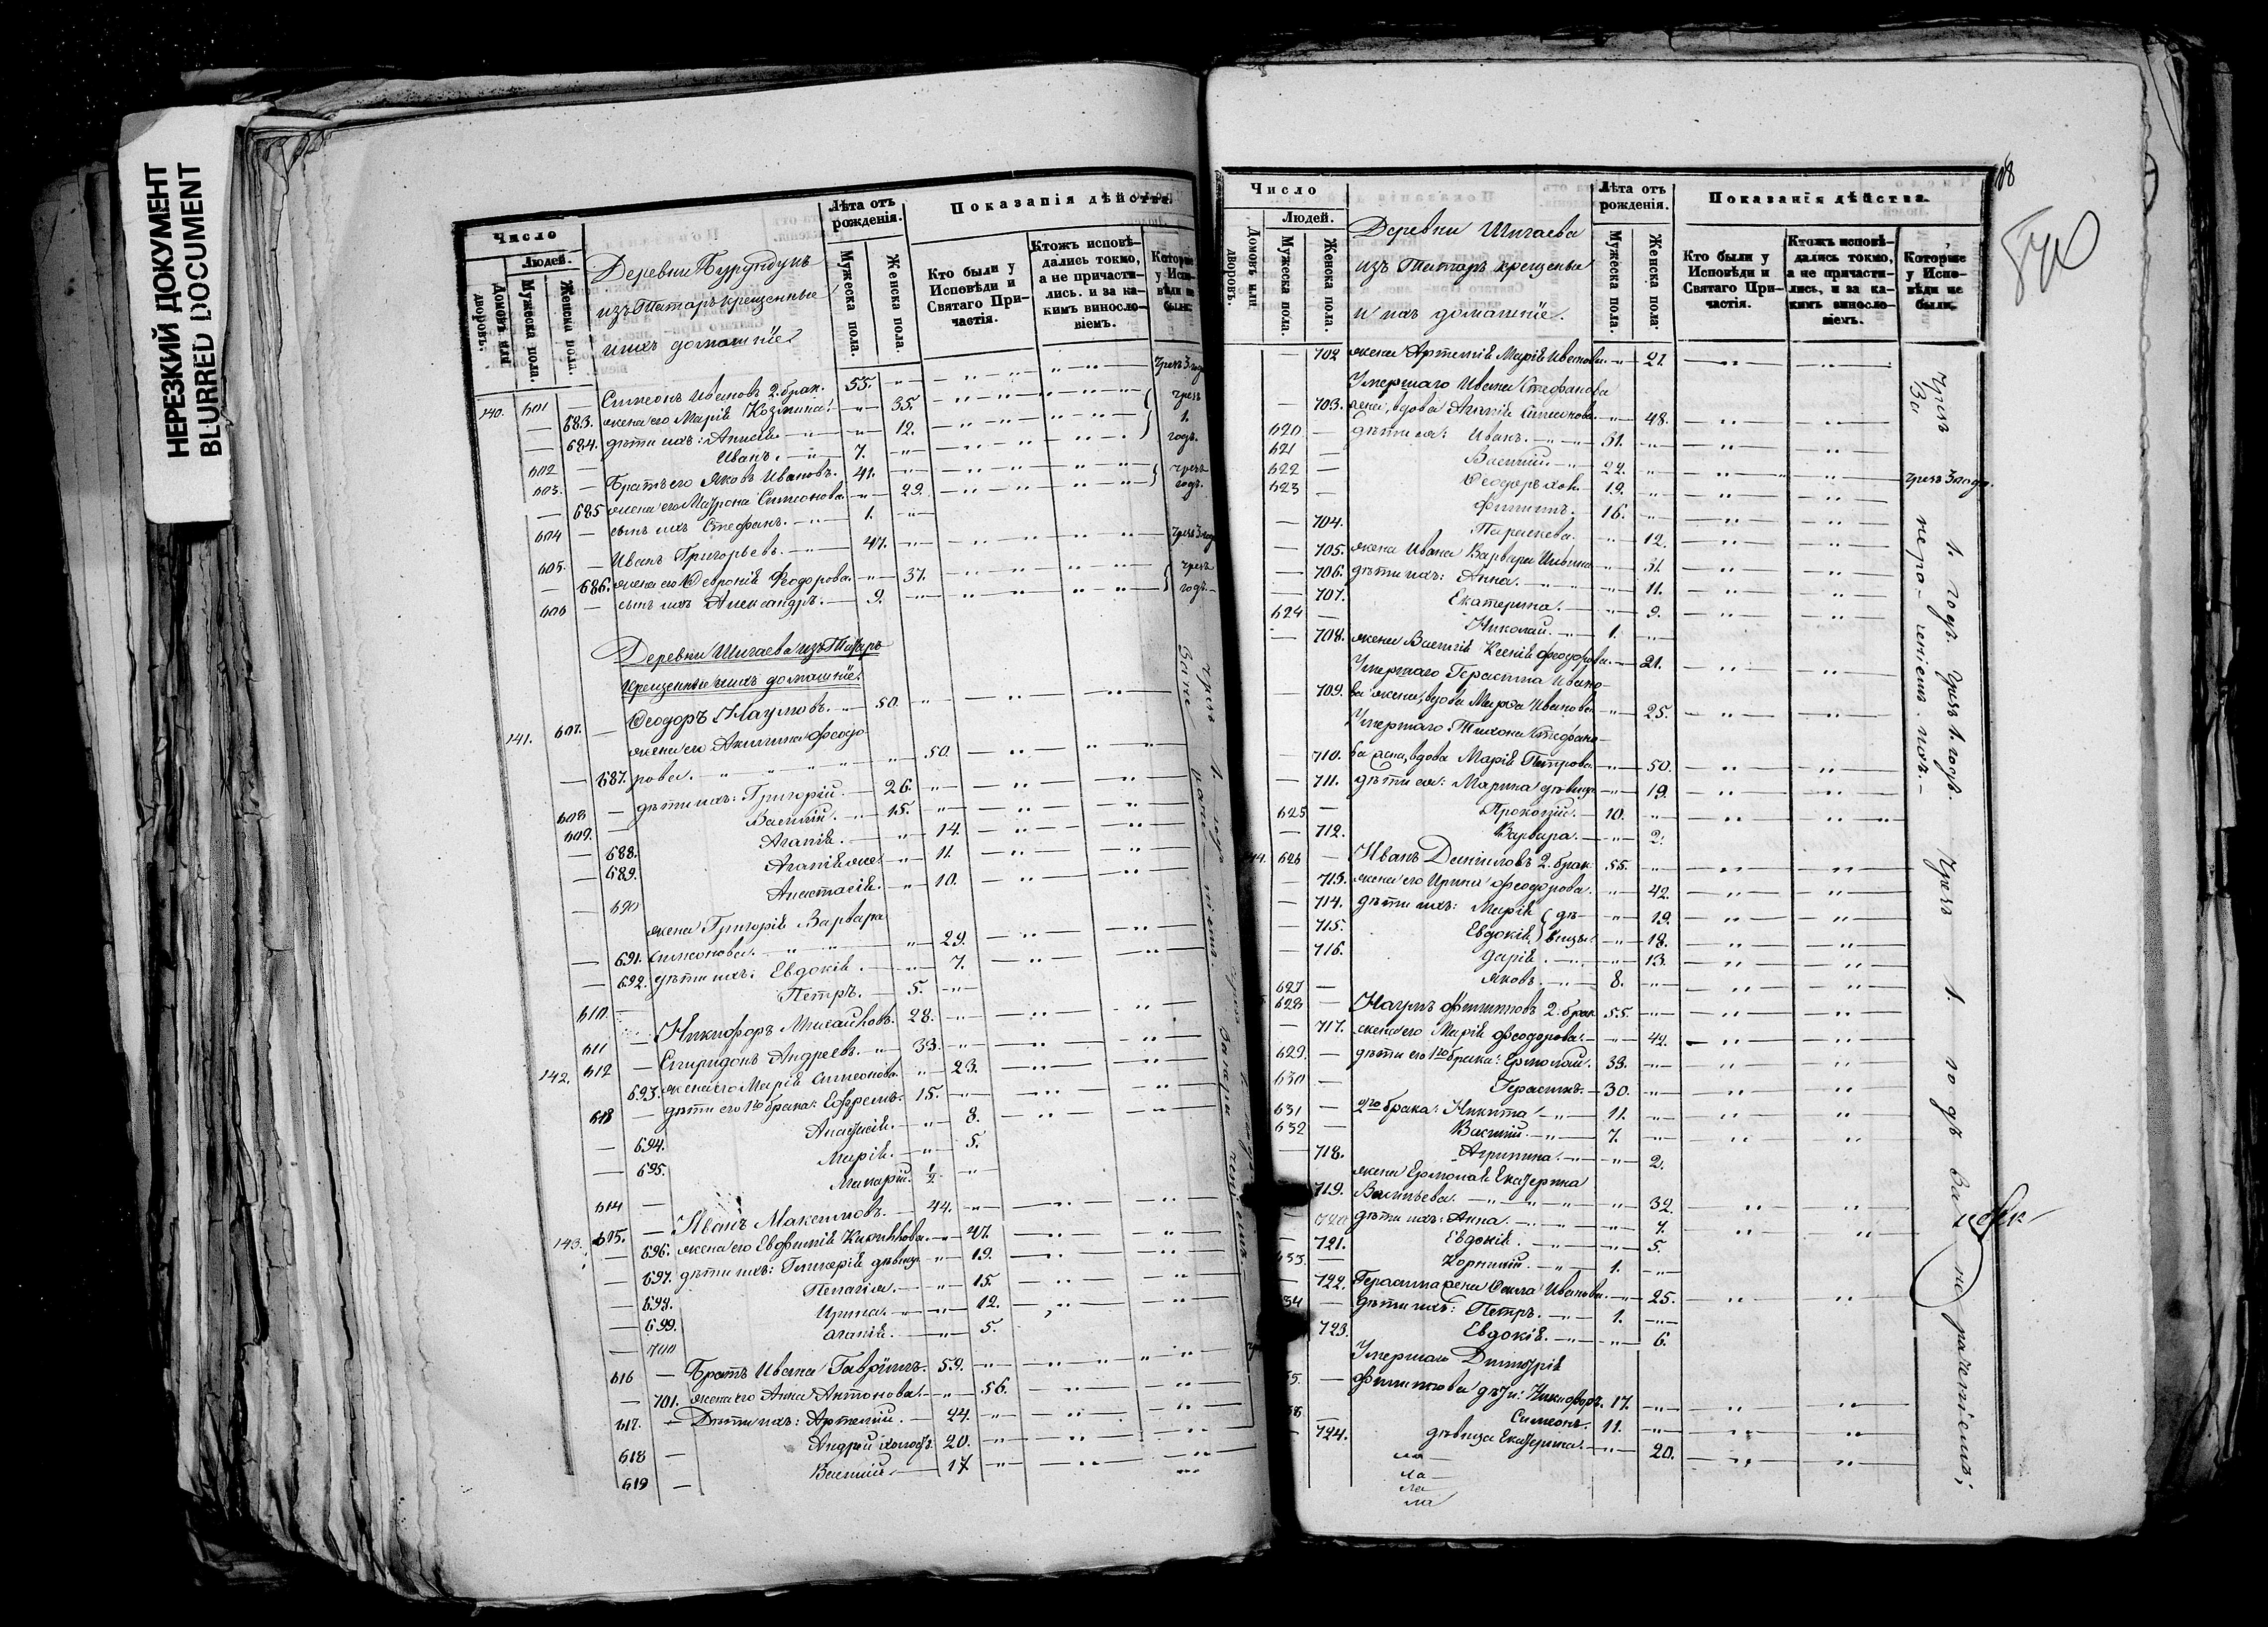 НЕРЕЗКИЙ ДОКУМЕНТ
BLURRED DOCUMENT
Число
Людей.
Домовъ или дворовъ.
Мужеска пола.
Женска пола.
Деревни Бурундукъ
изъ Татаръ крещенные
и ихъ домашніе
Лѣта отъ рожденія.
Мужеска пола.
Женска пола.
Показанія дѣйства.
Кто были у Исповѣди и Святаго Причастія.
Ктожъ исповѣдались токмо, а не причастились. и за какимъ винословіемъ.
Которые у Исповѣди не были.
140. 601 — Симеонъ Ивановъ 2. брак. 55. чрезъ 3 года
— 683. жена его Марія Козмина 35. чрезъ
— 684. дѣти ихъ: Анисія. 12. 1.
602 — Иванъ. 7. годъ.
603. — Братъ его Яковъ Ивановъ. 41. чрезъ
— 685 жена его Матрона Симеонова 29. годъ.
604 — сынъ ихъ Стефанъ. 1.
605. — Иванъ Григорьевъ. 47. чрезъ 3 года
— 686. жена его Февронія Феодорова. 37. чрезъ
606 — сынъ ихъ Александръ. 9. годъ.
Деревни Шигаева изъ Татаръ
крещенные и ихъ домашніе.
141. 607. — Ѳеодоръ Наумовъ. 50.
жена его Акилина Феодо
— 687. рова. 50.
608 — дѣти ихъ: Григорій. 26.
609. — Василій. 15.
— 688. Агапія. 14.
— 689. Агапія же 11.
— 690 Анастасія. 10.
жена Григорія Варвара
— 691. Симонова. 29.
— 692. дѣти ихъ: Евдокія. 7.
610. — Петръ. 5.
611 — Никифоръ Михайловъ. 28.
142. 612 — Спиридонъ Андреевъ. 33.
693. жена его Марія Симеонова 23.
613 — дѣти его 1го брака: Ефремъ. 15.
— 694. 8.
— 695. Марія. 5.
614 — Макарій. ½
143. 615. — Иванъ Максимовъ. 44.
— 696. жена его Евфимія Кириллова. 47.
— 697. дѣти ихъ: Гликерія дѣвица 19.
— 698. Пелагія. 15.
— 699. Ирина. 12.
— 700 Агапія. 5.
616 — Братъ Ивана Гавріилъ. 59.
— 701. жена его Анна Антонова. 56.
617. — Дѣти ихъ: Артемій. 24.
618 — Андрей холостъ. 20.
619 — Василій. 17
108
Число
Людей.
Домовъ или дворовъ.
Мужеска пола.
Женска пола.
Деревни Шигаева
изъ Татаръ крещеные
и ихъ домашніе.
Лѣта отъ рожденія.
Мужеска пола.
Женска пола.
Показанія дѣйства.
Кто были у Исповѣди и Святаго Причастія.
Ктожъ исповѣдались токмо, а не причастились, и за какимъ винословіемъ.
Которые у Исповѣди не были.
— 702 жена Артемія Марія Иванова. 21.
Умершаго Ивана Стефанова
— 703. жена, вдова Агапія Симеонова 48.
620 — дѣти ея: Иванъ. 31.
621 — Василій. 22.
622 — Ѳеодоръ хол. 19. чрезъ 3 года.
623 — Филиппъ. 16.
— 704. Параскева. 12.
— 705. жена Ивана Варвара Ильина 31.
— 706. дѣти ихъ: Анна. 11.
— 707. Екатерина. 9.
624 — Николай. 1.
— 708. жена Василія Ксенія Феодорова. 21.
Умершаго Герасима Ивано
— 709. ва жена, вдова Марѳа Иванова 25.
Умершаго Тихона Стефано
— 710. ва жена, вдова Марія Петрова 50.
— 711. дѣти ея: Марина дѣвица 19.
625 — Прокопій. 10.
— 712. Варвара. 2.
144. 626 — Иванъ Даниловъ 2. брак 55.
— 713. жена его Ирина Феодорова. 42.
— 714. дѣти ихъ: Марія дѣ- 19.
— 715. Евдокія вицы. 18.
— 716. Дарія. 13.
627 — Яковъ. 8.
628 — Наумъ Филипповъ 2. брак 55.
— 717. жена его Марія Феодорова. 42.
629. — дѣти его 1го брака: Ермолай. 33.
630 — Герасимъ. 30.
631 — 2го брака: Никита 11.
632 — Василій. 7.
— 718. Агрипина. 2.
жена Ермолая Екатерина
719. Васильева. 32.
720 дѣти ихъ: Анна. 7.
— 721. Евдокія. 5.
633. — Корнилій. 1.
— 722. Герасима жена Ѳекла Иванова. 25.
634 — дѣти ихъ: Петръ. 1.
723. Евдокія. 6.
Умершаго Димитрія
635. — Филиппова дѣти: Никифоръ. 17.
636 — Симеонъ. 11.
— 724. дѣвица Екатерина. 20.
Чрезъ 1. годъ. Чрезъ 1. годъ. Чрезъ 1. годъ
За нераченіемъ. За нераченіемъ;